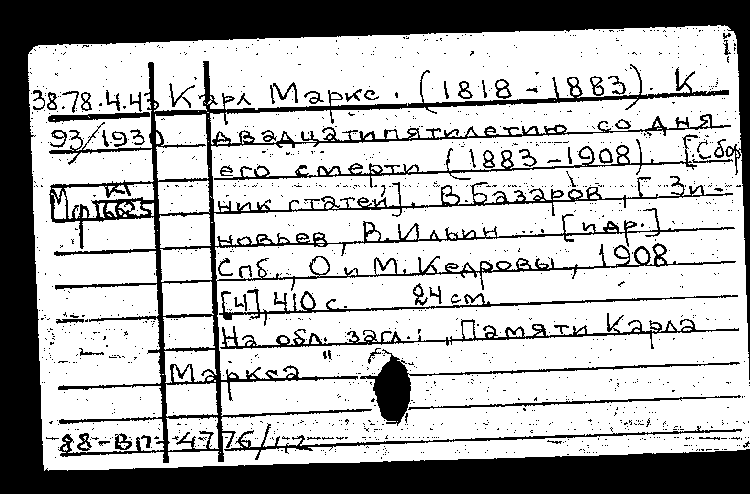 38.78.4.43 Карл Маркс. (1818 - 1883). К
93/1930 двадцатипятилетию со дня
его смерти (1883-1908). [Сбор
К1
Мф 16625 ник статей]. В.Базаров, Г. Зи-
новьев, В.Ильин ... [и др.].
Спб., О и М. Кедровы, 1908.
[4], 410 с. 24 см.
На обл. загл.: "Памяти Карла
Маркса"
88-ВП-4776/1,2